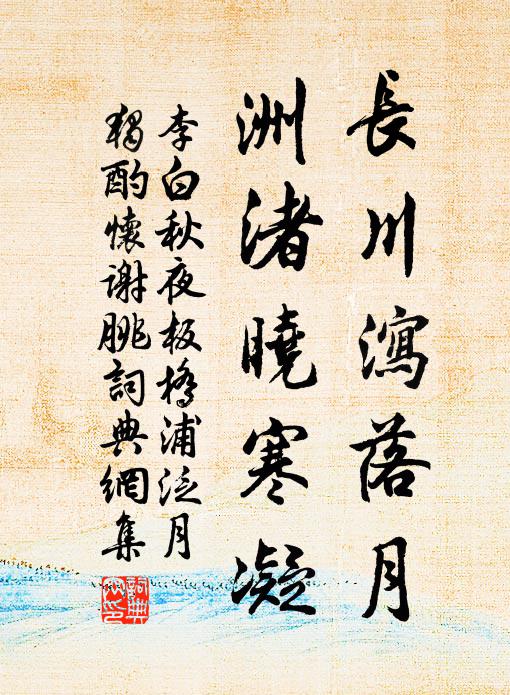 長川瀉落月
洲渚曉寒凝
李白秋夜板橋浦泛月
獨酌懷謝脁詞典網集